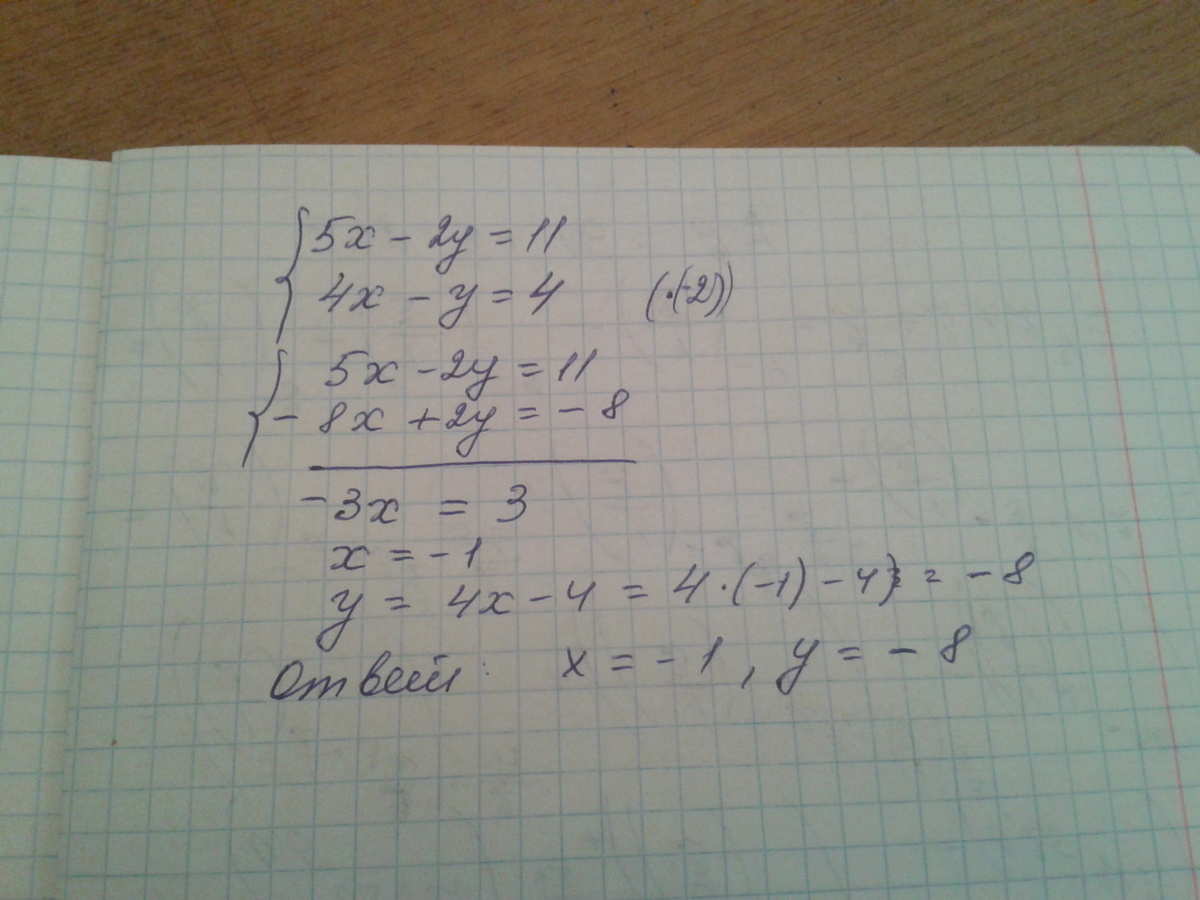 5x - 2y = 11
4x - y = 4 (·(-2))
5x - 2y = 11
- 8x + 2y = - 8
-3x = 3
x = -1
y = 4x - 4 = 4·(-1) - 4 = - 8
Ответ: x = - 1, y = - 8